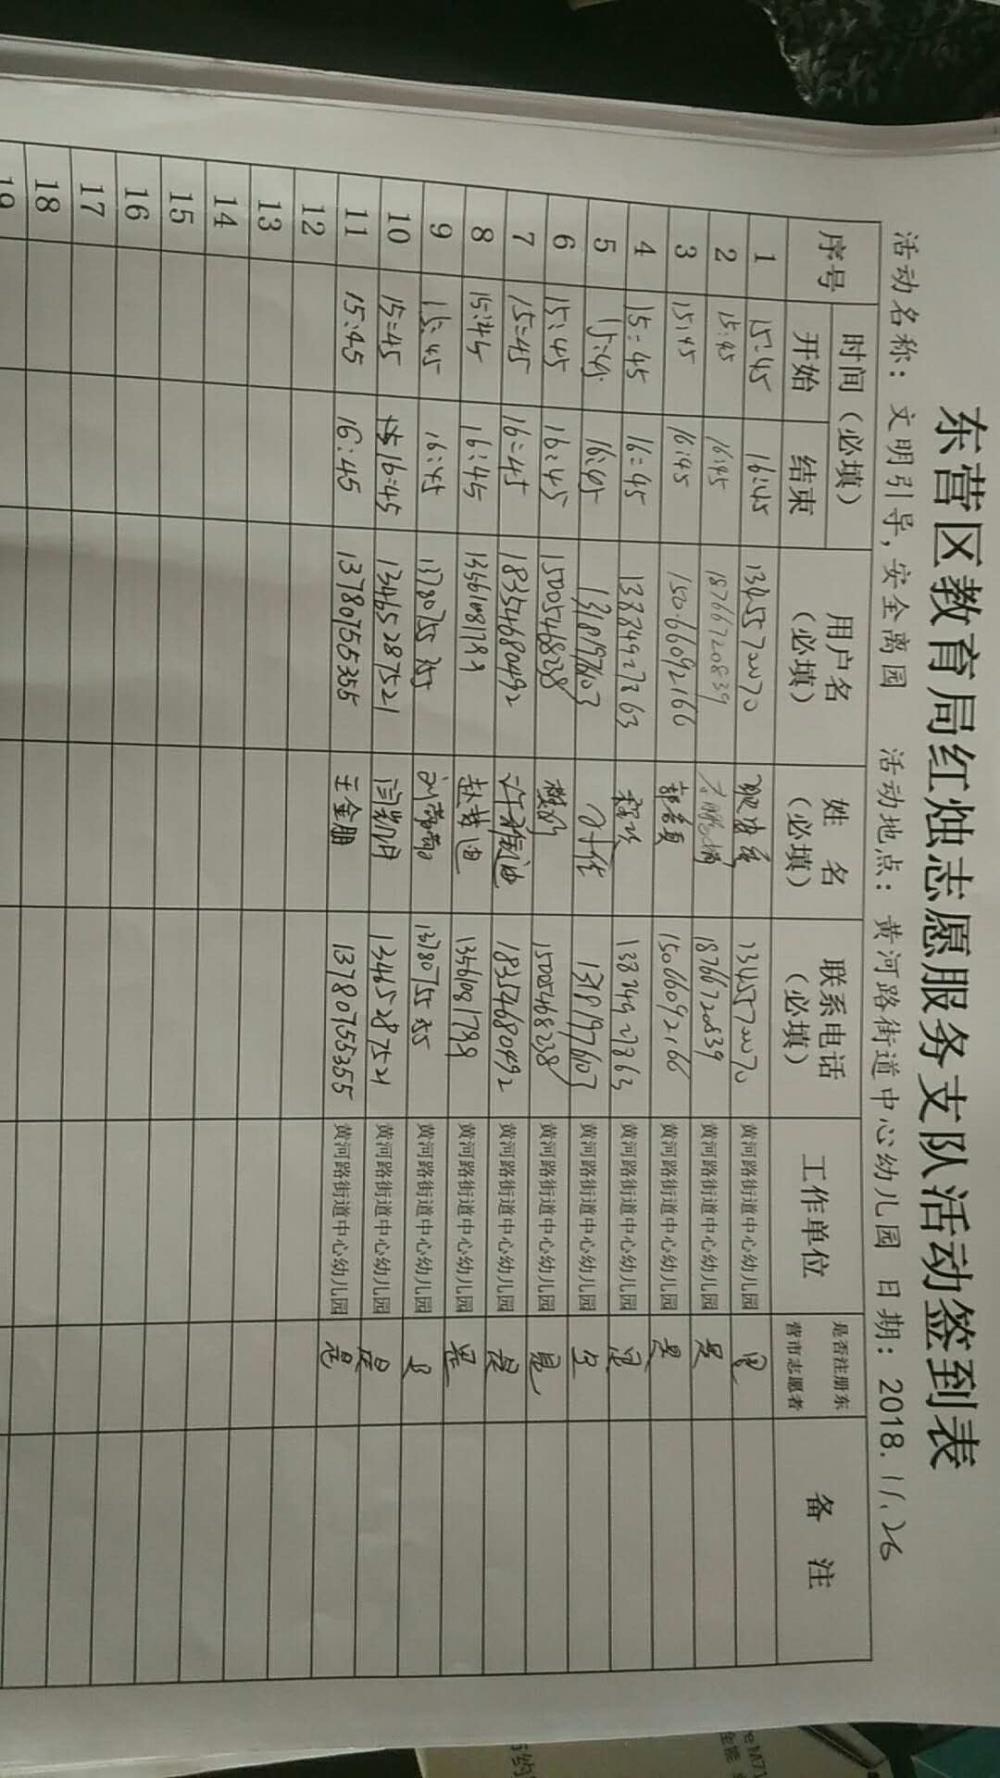 东营区教育局红烛志愿服务支队活动签到表
活动名称：文明引导，安全离园 活动地点：黄河路街道中心幼儿园 日期：2018.11.26
序号 时间（必填） 用户名（必填） 姓 名（必填） 联系电话（必填） 工作单位 是否注册东营市志愿者 备 注
开始 结束
1 15:45 16:45 黄河路街道中心幼儿园 是
2 15:45 16:45 18766720839 18766720839 黄河路街道中心幼儿园 是
3 15:45 16:45 15066092166 15066092166 黄河路街道中心幼儿园 是
4 15:45 16:45 13834927363 黄河路街道中心幼儿园 是
5 15:45 16:45 黄河路街道中心幼儿园 是
6 15:45 16:45 15005468238 15005468238 黄河路街道中心幼儿园 是
7 15:45 16:45 18354680492 18354680492 黄河路街道中心幼儿园 是
8 15:45 16:45 13561081799 13561081799 黄河路街道中心幼儿园 是
9 15:45 16:45 黄河路街道中心幼儿园 是
10 15:45 16:45 13465287521 闫凯月 13465287521 黄河路街道中心幼儿园 是
11 15:45 16:45 13780755355 王金朋 13780755355 黄河路街道中心幼儿园 是
12
13
14
15
16
17
18
19